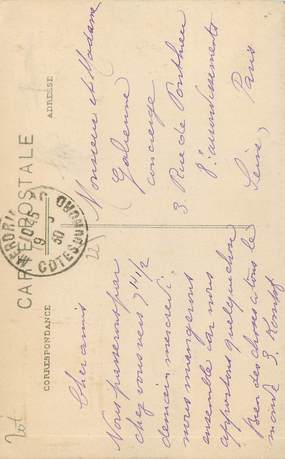 CARTE POSTALE
CORRESPONDANCE
ADRESSE
Cher amis
Nous passerons par
chez vous vers 7 H 1/2
demain mercredi.
nous mangerons
ensemble car nous
apportons quelque chose
Bien des choses a tous le
monde J.
Monsieur et Madame
Galienne
concierge
3 Rue de Ponthieu
8e arrondissement
Paris
Seine,
COTES DU NORD
30
22
20f